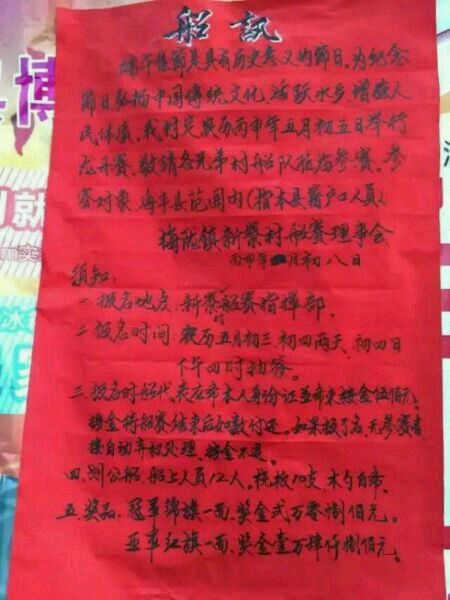 船訊
端午佳節是具有历史意义的節日，为纪念
節日弘扬中国传统文化，活跃水乡，增强人
民体质，我村定农历丙申年五月初五日举行
龙舟赛，敬請各兄弟村船队莅临参赛。参
赛对象，海丰县范围内（指本县籍户口人员）。
梅陇镇新寮村船赛理事会
丙申年 月初八日
须知：
一、报名地点：新寮村船赛指揮部．
二、报名时间：农历五月初三、初四两天、初四日
下午四时抽簽。
三、报名时船代表应带本人身份证並带来按金伍佰元，
按金待船赛结束后如数付还。如果报了名，无参赛者
按自动弃权处理，按金不退。
四、划公船，船上人员12人。桡枚10支，木勺自带．
五、奖品，冠军锦旗一面，奖金弍万零捌佰元。
亚军红旗一面，奖金壹万肆仟捌佰元。
博
就
m实
冰